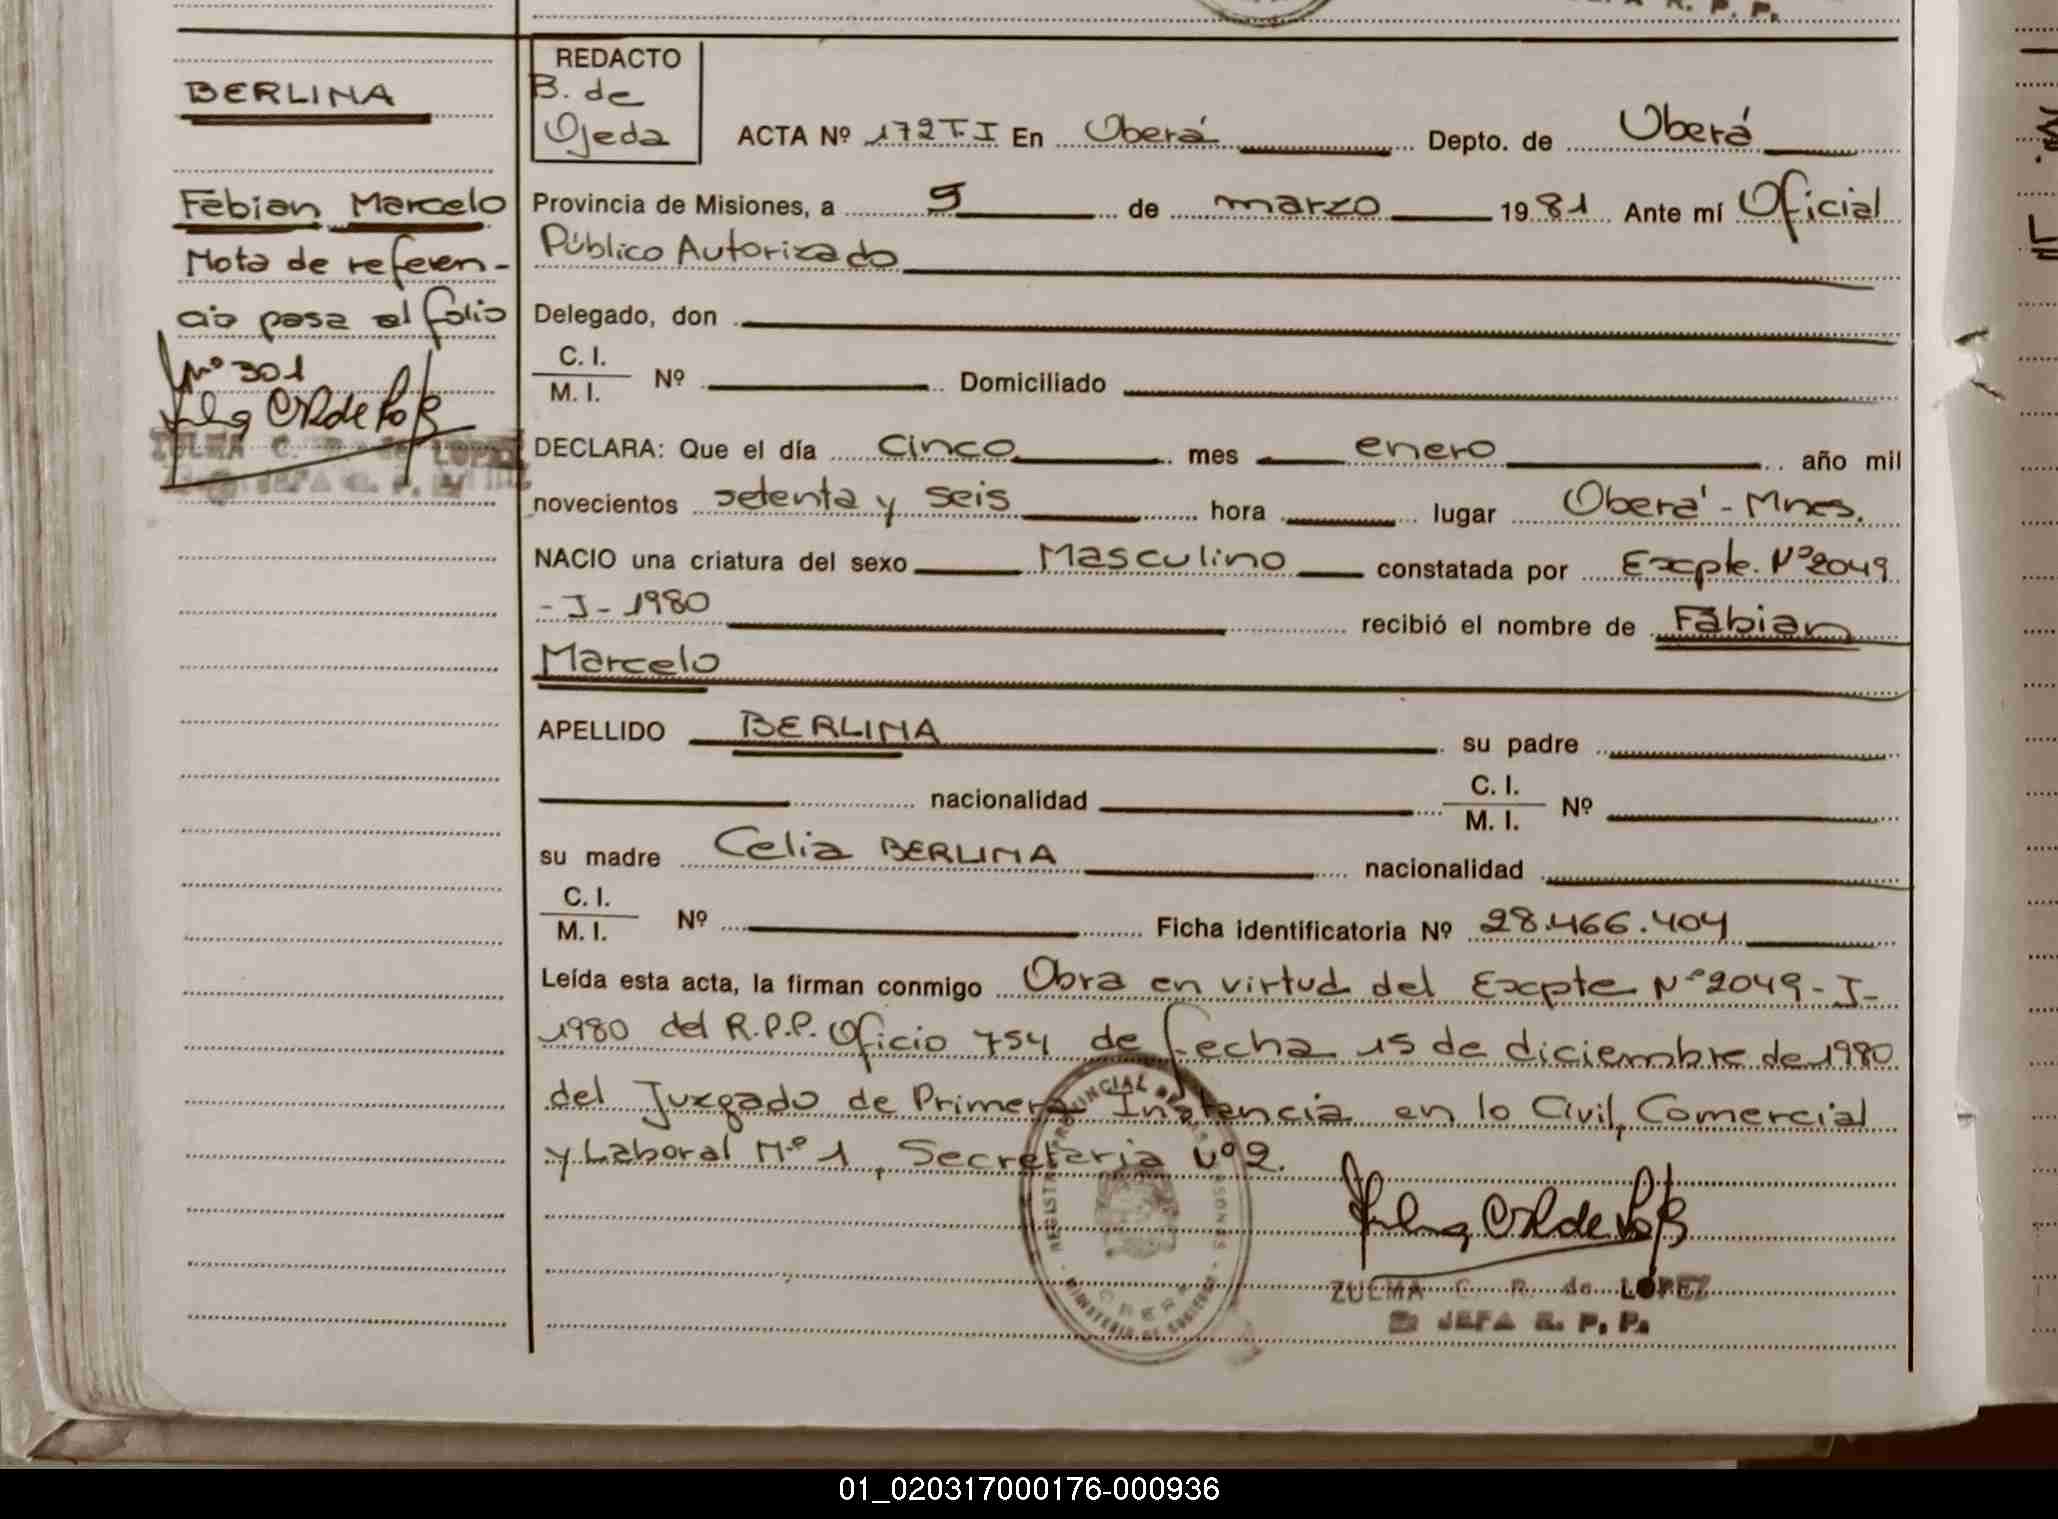 BERLINA
Fabian Marcelo
Nota de referen-
cia pasa al folio
Nº 301
ZULMA C. R. de LOPEZ
JEFA R. P. P.
REDACTO
B. de
Ojeda
ACTA Nº 172 T. I En Oberá Depto. de Oberá
Provincia de Misiones, a 9 de marzo 1981 Ante mí Oficial
Público Autorizado
Delegado, don
C. I.
M. I. Nº Domiciliado
DECLARA: Que el día cinco mes enero año mil
novecientos setenta y seis hora lugar Oberá - Mnes.
NACIO una criatura del sexo Masculino constatada por Expte. Nº 2049
- I - 1980 recibió el nombre de Fabian
Marcelo
APELLIDO BERLINA su padre
nacionalidad C. I.
M. I. Nº
su madre Celia BERLINA nacionalidad
C. I.
M. I. Nº Ficha identificatoria Nº 28.466.404
Leída esta acta, la firman conmigo Obra en virtud del Expte Nº 2049 - I -
1980 del R.P.P. Oficio 754 de fecha 15 de diciembre de 1980
del Juzgado de Primera Instancia en lo Civil, Comercial
y Laboral Nº 1, Secretaria Nº 2.
REGISTRO PROVINCIAL DE LAS PERSONAS
OBERA
MINISTERIO DE GOBIERNO
ZULMA C. R. de LOPEZ
JEFA R. P. P.
01_020317000176-000936